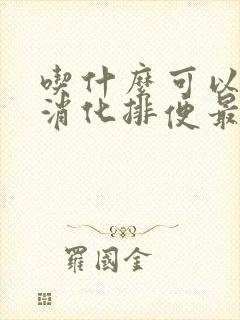 喫什麼可以
消化排便最
羅國金